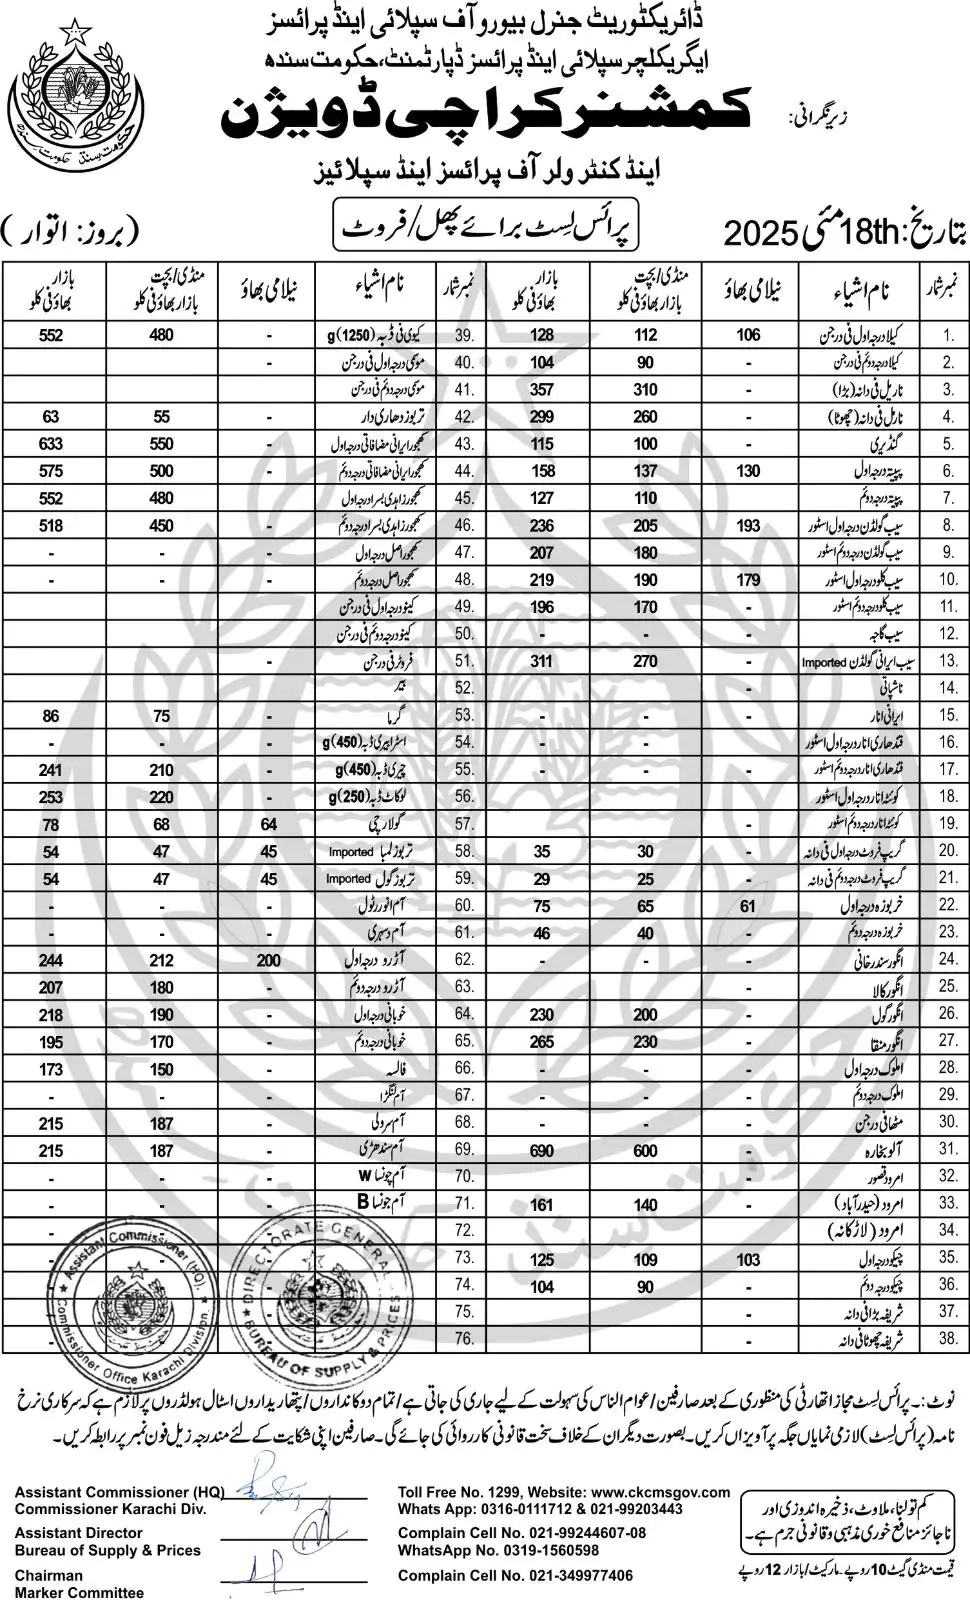 ڈائریکٹوریٹ جنرل بیورو آف سپلائی اینڈ پرائسز
ایگریکلچر سپلائی اینڈ پرائسز ڈپارٹمنٹ، حکومت سندھ
زیر نگرانی: کمشنر کراچی ڈویژن
اینڈ کنٹرولر آف پرائسز اینڈ سپلائیز
تاریخ: 18th مئی 2025 پرائس لسٹ برائے پھل/فروٹ (بروز: اتوار)
نمبر شمار نام اشیاء نیلامی بھاؤ منڈی/بچت بازار بھاؤ فی کلو بازار بھاؤ فی کلو نمبر شمار نام اشیاء نیلامی بھاؤ منڈی/بچت بازار بھاؤ فی کلو بازار بھاؤ فی کلو
1. کیلا درجہ اول فی درجن 106 112 128 39. کیوی فی ڈبہ (1250)g - 480 552
2. کیلا درجہ دوئم فی درجن - 90 104 40. موسمی درجہ اول فی درجن -
3. ناریل فی دانہ (بڑا) 310 357 41. موسمی درجہ دوئم فی درجن
4. ناریل فی دانہ (چھوٹا) - 260 299 42. تربوز دھاری دار - 55 63
5. گنڈیری - 100 115 43. کھجور ایرانی مضافاتی درجہ اول - 550 633
6. پپیتہ درجہ اول 130 137 158 44. کھجور ایرانی مضافاتی درجہ دوئم - 500 575
7. پپیتہ درجہ دوئم - 110 127 45. کھجور زاہدی بسرا درجہ اول 480 552
8. سیب گولڈن درجہ اول اسٹور 193 205 236 46. کھجور زاہدی بسرا درجہ دوئم - 450 518
9. سیب گولڈن درجہ دوئم اسٹور - 180 207 47. کھجور اصل درجہ اول - -
10. سیب کلو درجہ اول اسٹور 179 190 219 48. کھجور اصل درجہ دوئم - - -
11. سیب کلو درجہ دوئم اسٹور - 170 196 49. کینو درجہ اول فی درجن -
12. سیب گاجہ - - - 50. کینو درجہ دوئم فی درجن
13. سیب ایرانی گولڈن Imported - 270 311 51. فروٹر فی درجن -
14. ناشپاتی - 52. بیر
15. ایرانی انار - - - 53. گرما - 75 86
16. قندھاری انار درجہ اول اسٹور - - 54. اسٹرابیری ڈبہ (450)g - - -
17. قندھاری انار درجہ دوئم اسٹور - - - 55. چیری ڈبہ (450)g - 210 241
18. کوئٹہ انار درجہ اول اسٹور 56. لوکاٹ ڈبہ (250)g - 220 253
19. کوئٹہ انار درجہ دوئم اسٹور - 57. گولارچی 64 68 78
20. گریپ فروٹ درجہ اول فی دانہ - 30 35 58. تربوز لمبا Imported 45 47 54
21. گریپ فروٹ درجہ دوئم فی دانہ - 25 29 59. تربوز گول Imported 45 47 54
22. خربوزہ درجہ اول 61 65 75 60. آم انور رٹول - - -
23. خربوزہ درجہ دوئم - 40 46 61. آم دسہری - - -
24. انگور سندرخانی - - - 62. آڑو درجہ اول 200 212 244
25. انگور کالا 63. آڑو درجہ دوئم - 180 207
26. انگور گول - 200 230 64. خوبانی درجہ اول - 190 218
27. انگور منقا - 230 265 65. خوبانی درجہ دوئم - 170 195
28. املوک درجہ اول - - - 66. فالسہ - 150 173
29. املوک درجہ دوئم - 67. آم لنگڑا - - -
30. مٹھا فی درجن - - - 68. آم سرولی - 187 215
31. آلو بخارہ - 600 690 69. آم سندھڑی - 187 215
32. امرود قصور - 70. آم چونسا W - - -
33. امرود (حیدرآباد) - 140 161 71. آم چونسا B - - -
34. امرود (لاڑکانہ) 72. -
35. چیکو درجہ اول 103 109 125 73. - -
36. چیکو درجہ دوئم - 90 104 74. -
37. شریفہ بڑا فی دانہ - 75. -
38. شریفہ چھوٹا فی دانہ - 76. - -
Assistant Commissioner (HQ)
Commissioner Office Karachi Division.
DIRECTORATE GENERAL
BUREAU OF SUPPLY & PRICES
نوٹ:۔ پرائس لسٹ مجاز اتھارٹی کی منظوری کے بعد صارفین/عوام الناس کی سہولت کے لیے جاری کی جاتی ہے/تمام دوکانداروں/پتھاریداروں اسٹال ہولڈروں پر لازم ہے کہ سرکاری نرخ
نامہ (پرائس لسٹ) لازمی نمایاں جگہ پر آویزاں کریں۔ بصورت دیگر ان کے خلاف سخت قانونی کارروائی کی جائے گی۔ صارفین اپنی شکایت کے لئے مندرجہ زیل فون نمبر پر رابطہ کریں۔
Assistant Commissioner (HQ)
Commissioner Karachi Div.
Assistant Director
Bureau of Supply & Prices
Chairman
Marker Committee
Toll Free No. 1299, Website: www.ckcmsgov.com
Whats App: 0316-0111712 & 021-99203443
Complain Cell No. 021-99244607-08
WhatsApp No. 0319-1560598
Complain Cell No. 021-349977406
کم تولنا، ملاوٹ، ذخیرہ اندوزی اور
ناجائز منافع خوری مذہبی و قانونی جرم ہے۔
قیمت منڈی گیٹ 10 روپے۔ مارکیٹ/بازار 12 روپے